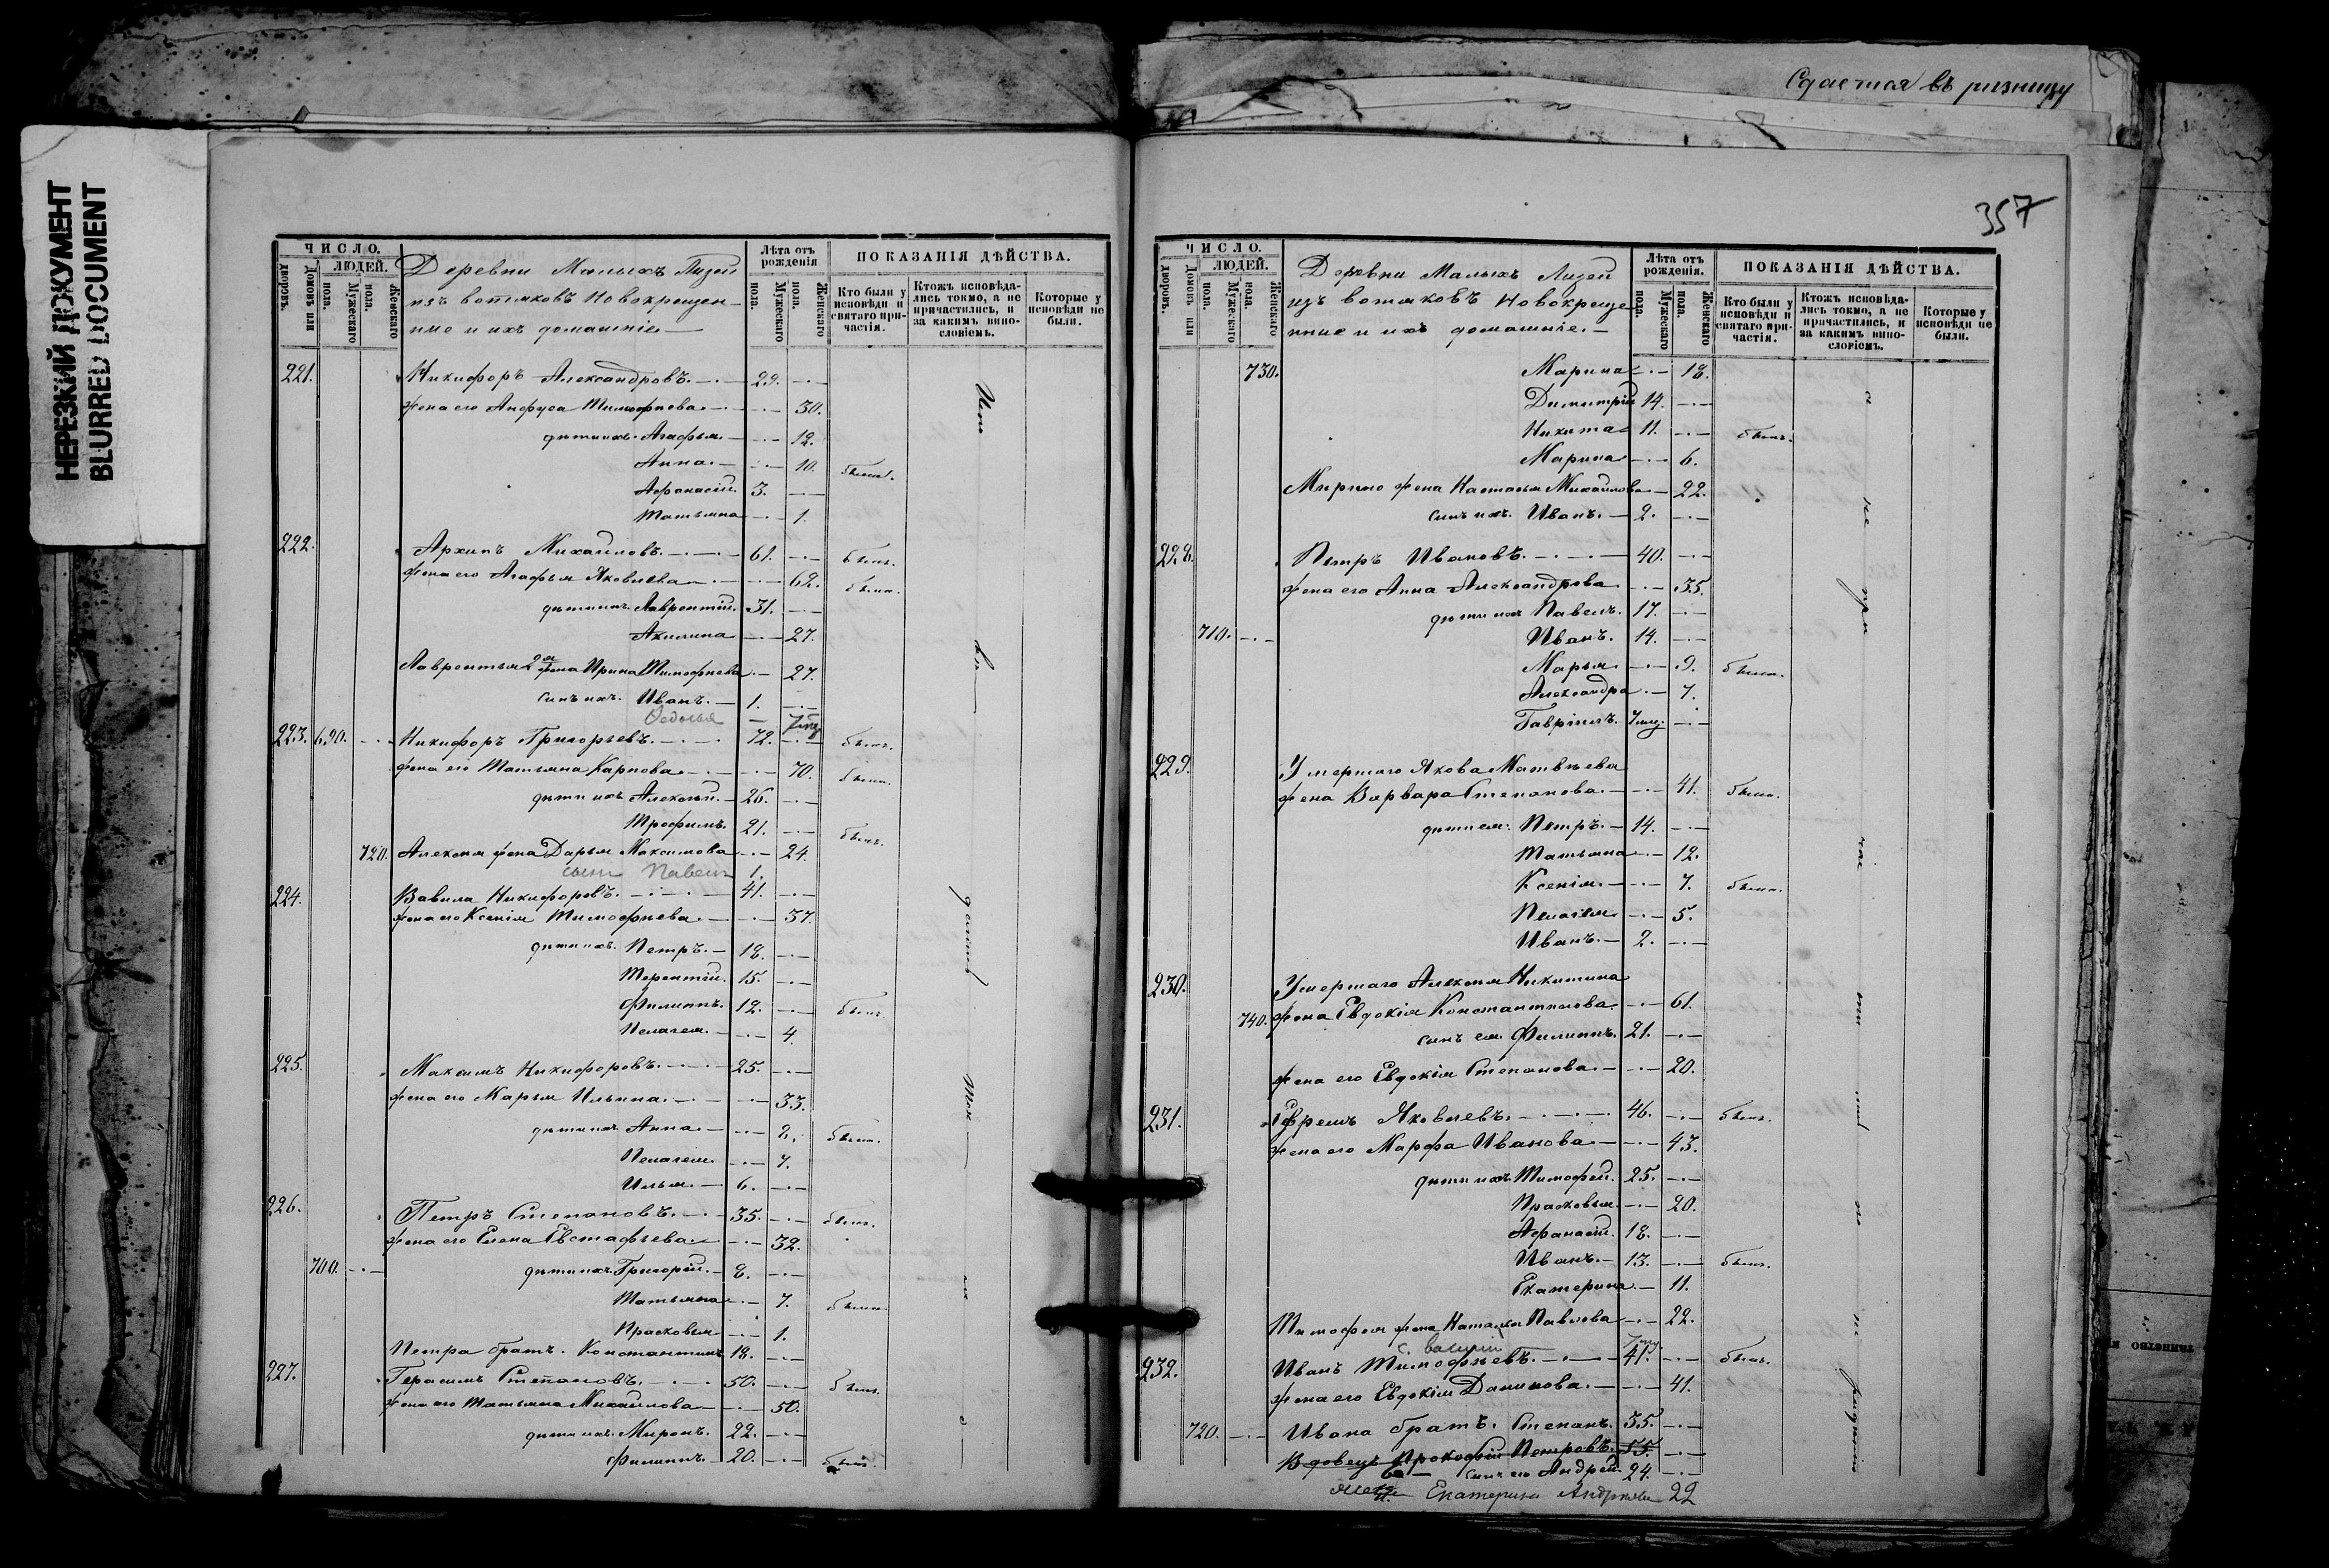 Сдается въ ризницу
НЕРЕЗКИЙ ДОКУМЕНТ
BLURRED DOCUMENT
357
ЧИСЛО.
ЛЮДЕЙ.
Домовъ или дворовъ.
Мужескаго пола.
Женскаго пола.
Деревни Малыхъ Лизей
изъ вотяковъ новокрещен-
ные и ихъ домашніе
Лѣта отъ рожденія
Мужескаго пола.
Женскаго пола.
ПОКАЗАНІЯ ДѢЙСТВА.
Кто были у исповѣди и святаго причастія.
Ктожъ исповѣдались токмо, а не причастились, и за какимъ винословіемъ.
Которые у исповѣди не были.
221. Никифоръ Александровъ. 29.
жена его Анфуса Тимофеева 30.
дѣти ихъ. Агафья. 12.
Анна. 10.
Афанасій. 3.
Татьяна 1.
222. Архипъ Михайловъ. 61. былъ.
жена его Агафья Яковлева 62. была.
дѣти ихъ Лаврентій. 31.
Акилина 27.
Лаврентья 2я жена Ирина Тимофеева 27.
сынъ ихъ. Иванъ. 1.
Федосья
223. 690. Никифоръ Григорьевъ. 72. былъ.
жена его Татьяна Карпова 70. была.
дѣти ихъ Алексѣй. 26.
Трофимъ. 21. былъ.
720. Алексея жена Дарья Максимова 24.
сынъ Павелъ 1.
224. Вавила Никифоровъ. 41.
жена его Ксенія Тимофеева. 37.
дѣти ихъ. Петръ. 18.
Терентій. 15.
Филиппъ. 12. былъ.
Пелагея. 4.
225. Максимъ Никифоровъ. 25.
жена его Марья Ильина. 33.
дѣти ихъ Анна. была.
Пелагея. 7.
Илья. 6.
226. Петръ Степановъ. 35. былъ.
жена его Елена Евстафьева. 32.
700. дѣти ихъ. Григорій. 8.
Татьяна 7.
Прасковья 1.
Петра братъ. Константинъ 18.
227. Герасимъ Степановъ. 50. былъ.
жена его Татьяна Михайлова 50.
дѣти ихъ. Миронъ. 22.
Филиппъ. 20.
ЧИСЛО.
ЛЮДЕЙ.
Домовъ или дворовъ.
Мужескаго пола.
Женскаго пола.
Деревни Малыхъ Лизей
изъ вотяковъ новокреще
нные и ихъ домашніе.
Лѣта отъ рожденія.
Мужескаго пола.
Женскаго пола.
ПОКАЗАНІЯ ДѢЙСТВА.
Кто были у исповѣди и святаго причастія.
Ктожъ исповѣдались токмо, а не причастились, и за какимъ винословіемъ.
Которые у исповѣди не были.
730. Марина 18.
Димитрій 14.
Никита 11. былъ.
Марина 6.
Мирона жена Настасья Михайлова 22.
сынъ ихъ. Иванъ. 2.
228. Петръ Ивановъ. 40.
жена его Анна Александрова 35.
дѣти ихъ Павелъ. 17.
710. Иванъ. 14.
Марья. 9. была.
Александра 7.
Гавріилъ.
229. Умершаго Якова Матвѣева
жена Варвара Степанова. 41. была.
дѣти ея: Петръ. 14.
Татьяна 12.
Ксенія. 7. была.
Пелагея 5.
Иванъ. 2.
230. Умершаго Алексея Никитина
740. жена Евдокія Константинова. 61.
сынъ ея. Филиппъ. 21.
жена его Евдокія Степанова. 20.
231. Ефремъ Яковлевъ. 46. былъ.
жена его Марфа Иванова 43.
дѣти ихъ Тимофей. 25.
Прасковья. 20.
Афанасій. 18.
Иванъ. 13. былъ.
Екатерина 11.
Тимофея жена Наталья Павлова 22.
232. Иванъ Тимофеевъ. 41. былъ.
жена его Евдокія Данилова. 41.
720. Ивана братъ. Степанъ. 35.
Вдовецъ Прокофій Петровъ. 55.
сынъ его Андрей. 24.
Екатерина 22